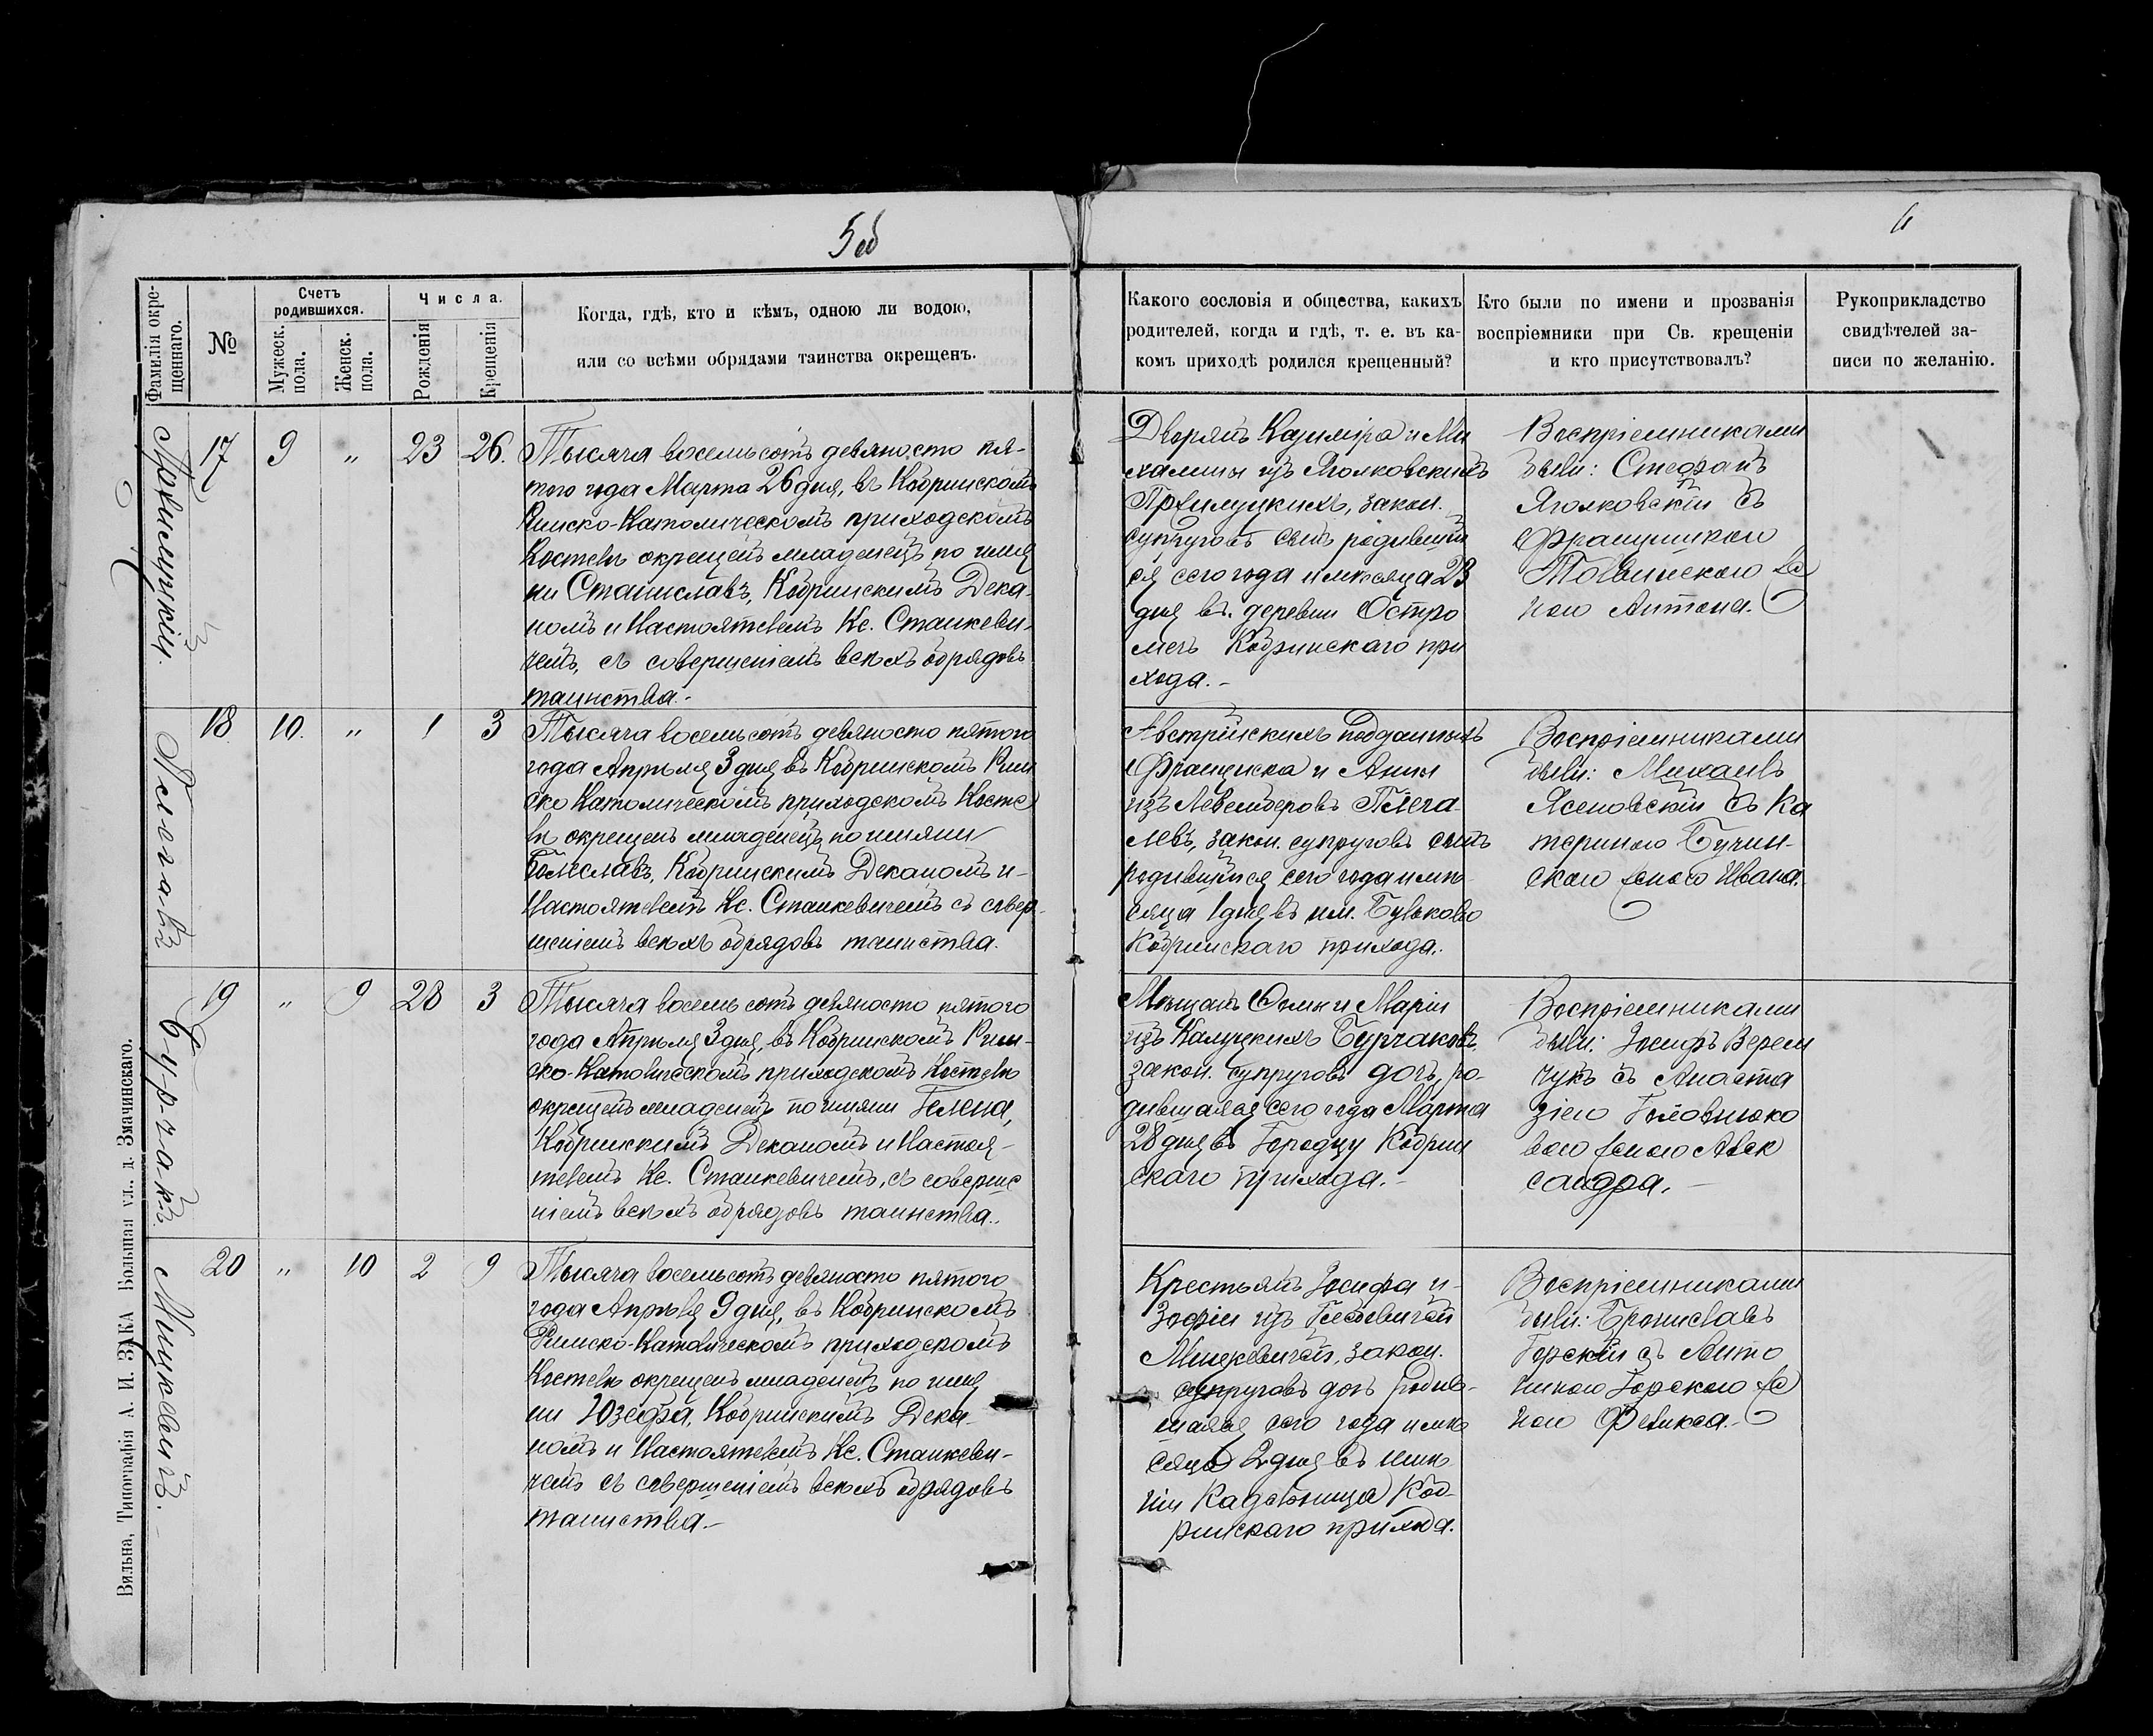 5об
6
Фамилія окре-
щеннаго.
№
Счетъ
родившихся.
Мужеск.
пола.
Женск.
пола.
Числа.
Рожденія
Крещенія
Когда, гдѣ, кто и кѣмъ, одною ли водою,
или со всѣми обрядами таинства окрещенъ.
Какого сословія и общества, какихъ
родителей, когда и гдѣ, т. е. въ ка-
комъ приходѣ родился крещенный?
Кто были по имени и прозванія
воспріемники при Св. крещеніи
и кто присутствовалъ?
Рукоприкладство
свидѣтелей за-
писи по желанію.
17 9 „ 23 26.
Тысяча восемьсотъ девяносто пя-
того года Марта 26 дня, въ Кобринскомъ
Римско-Католическомъ приходскомъ
Костелѣ окрещенъ младенецъ по име
ни Станиславъ, Кобринскимъ Дека-
номъ и Настоятелемъ Кс. Станкеви-
чемъ, съ совершеніемъ всѣхъ обрядовъ
таинства.-
Дворянъ Казиміра и Ми
халины изъ Яголковскихъ
закон.
супруговъ сынъ родившій
ся сего года и мѣсяца 23
дня въ деревни Остро
мечь Кобринскаго при
хода.-
Воспріемниками
были: Стефанъ
Яголковскій съ
Францишкою
же
ною Антона.
Плегавъ
18 10. „ 1 3
Тысяча восемьсотъ девяносто пятого
года Апрѣля 3 дня въ Кобринскомъ Рим
ско Католическомъ приходскомъ Косте
лѣ окрещенъ младенецъ по имени
Болеславъ, Кобринскимъ Деканомъ и-
Настоятелемъ Кс. Станкевичемъ съ совер-
шеніемъ всѣхъ обрядовъ таинства.
Австрійскихъ подданныхъ
Францишка и Анны
изъ Плега-
левъ, закон. супруговъ сынъ
родившійся сего года и мѣ-
сяца 1 дня въ им.
Кобринскаго прихода.
Воспріемниками
были: Михаилъ
Ясеновскій съ Ка
териною Бучин-
скою женою Ивана.
Бурчакъ.
19 „ 9 28 3
Тысяча восемь сотъ девяносто пятого
года Апрѣля 3 дня, въ Кобринскомъ Рим-
ско-Католическомъ приходскомъ Костелѣ
окрещенъ младенецъ по имени Гелена,
Кобринскимъ Деканомъ и Настоя-
телемъ Кс. Станкевичемъ, съ соверше
ніемъ всѣхъ обрядовъ таинства.
Мѣщанъ Ѳомы и Маріи
изъ Калуцкихъ Бурчаковъ,
закон. супруговъ дочь, ро-
дившаяся сего года Марта
28 дня въ Городцу Кобрин
скаго прихода.-
Воспріемниками
были: Іосифъ Верем
чукъ съ Анаста
зіею
вою женою Алек
сандра.-
Мицкевичъ.-
20 „ 10 2 9
Тысяча восемьсотъ девяносто пятого
года Апрѣля 9 дня, въ Кобринскомъ
Римско-Католическомъ приходскомъ
Костелѣ окрещенъ младенецъ по име
ни Юзефа, Кобринскимъ Дека-
номъ и Настоятелемъ Кс. Станкеви-
чемъ съ совершеніемъ всѣхъ обрядовъ
таинства.-
Крестьянъ Іосифа и-
Зофіи изъ
Мицкевичей, закон.
супруговъ дочь родив-
шаяся сего года и мѣ
сяца 2 дня въ имѣ
ніи Коб-
ринскаго прихода.
Воспріемниками
были: Брониславъ
Горскій съ Анто
ниною Горскою же
ною Феликса.-
Вильна, Типографія А. И. ЗАКА Большая ул., д. Значинскаго.